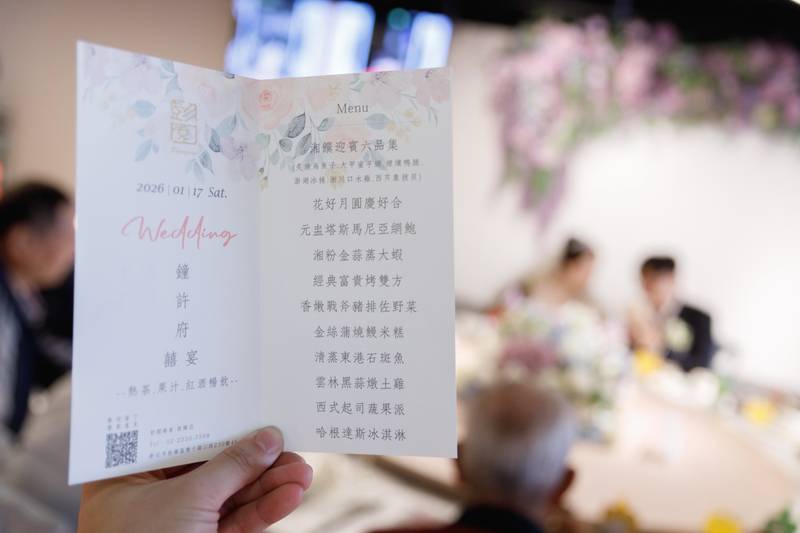 2026 | 01 | 17 Sat.
Wedding
鐘
許
府
囍宴
--熱茶.果汁.紅酒暢飲--
Menu
湘饌迎賓六品集
花好月圓慶好合
元盅塔斯馬尼亞網鮑
湘粉金蒜蒸大蝦
經典富貴烤雙方
香嫩戰斧豬排佐野菜
金絲蒲燒鰻米糕
清蒸東港石斑魚
雲林黑蒜燉土雞
西式起司蔬果派
哈根達斯冰淇淋